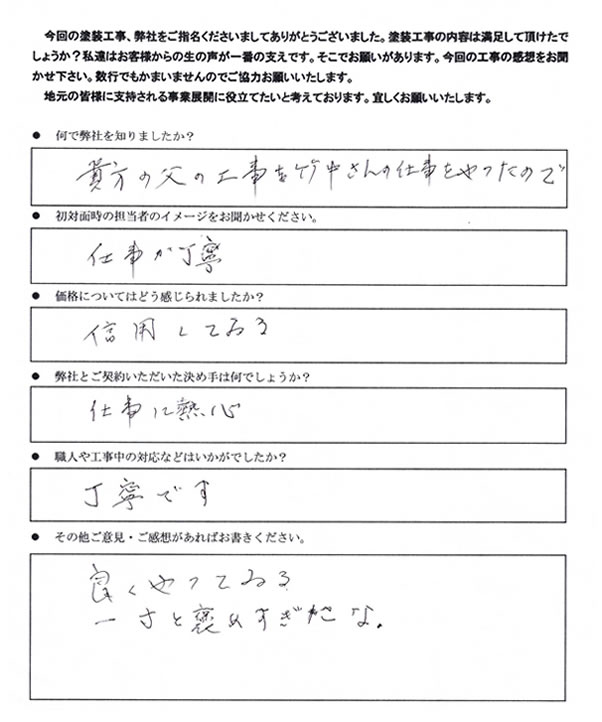 今回の塗装工事、弊社をご指名くださいましてありがとうございました。塗装工事の内容は満足して頂けたで
しょうか？私達はお客様からの生の声が一番の支えです。そこでお願いがあります。今回の工事の感想をお聞
かせ下さい。数行でもかまいませんのでご協力お願いいたします。
地元の皆様に支持される事業展開に役立てたいと考えております。宜しくお願いいたします。
● 何で弊社を知りましたか？
貴方の父の工事を竹中さんの仕事をやつたので
● 初対面時の担当者のイメージをお聞かせください。
仕事が丁寧
● 価格についてはどう感じられましたか？
信用してゐる
● 弊社とご契約いただいた決め手は何でしょうか？
仕事に熱心
● 職人や工事中の対応などはいかがでしたか？
丁寧です
● その他ご意見・ご感想があればお書きください。
良くやつてゐる
一寸と褒めすぎだな。